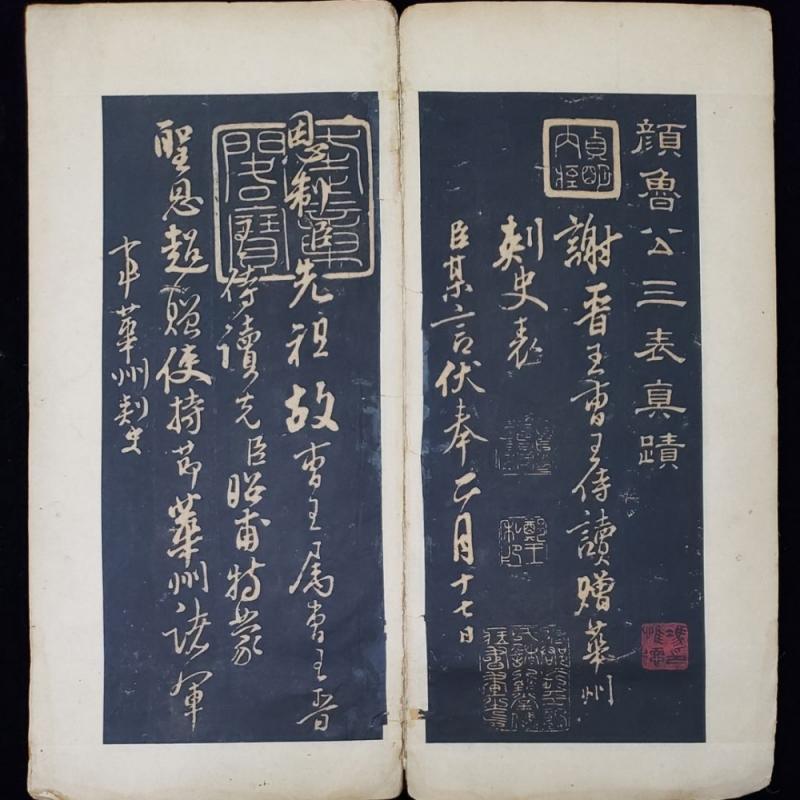 顔魯公三表真蹟
謝晋王曹王侍讀贈華州
刺史表
臣某言伏奉正月十七日
奎章閣寶
恩制臣先祖故曹王属曹王晋
王侍讀先臣昭甫特蒙
聖恩超贈使持節華州諸軍
事華州刺史